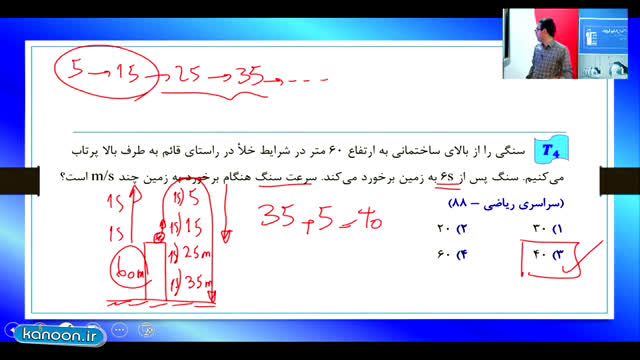 5 → 15 → 25 → 35 → ---
T4
سنگی را از بالای ساختمانی به ارتفاع ۶۰ متر در شرایط خلأ در راستای قائم به طرف بالا پرتاب
می‌کنیم. سنگ پس از ۶s به زمین برخورد می‌کند. سرعت سنگ هنگام برخورد به زمین چند m/s است؟
(سراسری ریاضی – ۸۸)
۱) ۳۰
۲) ۲۰
۳) ۴۰
۴) ۶۰
35 + 5 = 40
1s
1s
1s) 5
1s) 15
1s) 25 m
1s) 35 m
60 m
kanoon.ir